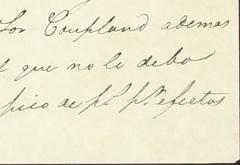 Sor Coupland ademas
l que no le debo
pico de p.s p.r efectos